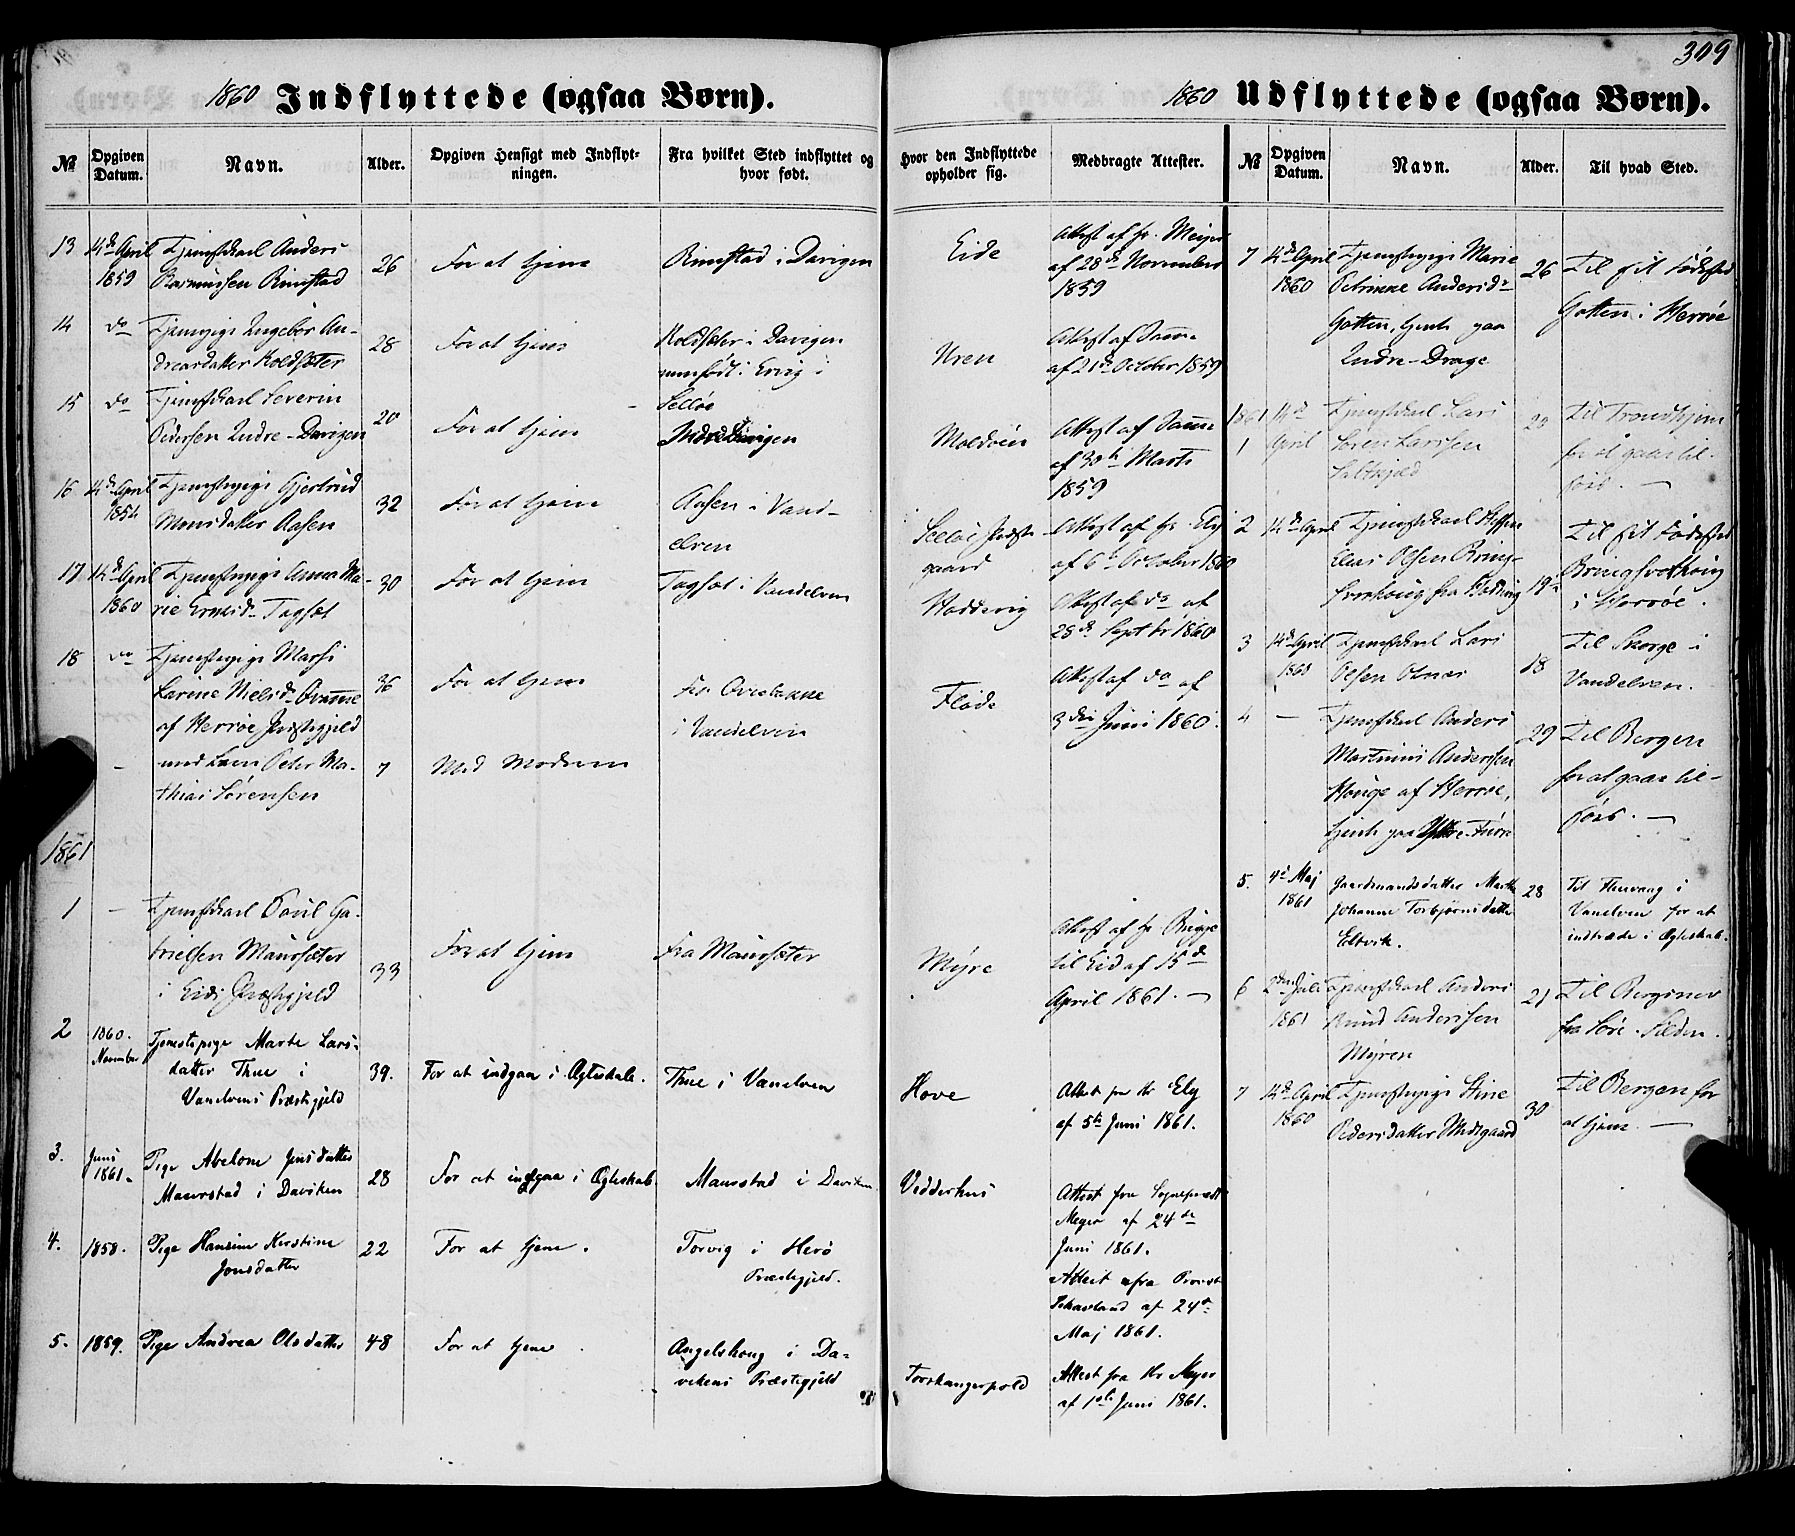 309
1860 Indflyttede (ogsaa Børn).
№ Opgiven Datum. Navn. Alder. Opgiven Hensigt med Indflytningen. Fra hvilket Sted indflyttet og hvor født.
Hvor den Indflyttede opholder sig. Medbragte Attester.
13 14de April Tjenestkarl Anders
1859 Rasmussen Rimstad 26 For at tjene Rimstad i Davigen
Eide Attest af hr. Meyer
af 28de November
1859
14 do Tjenpige Ingebor An-
dreasdatter Koldsæter 28 For at tjene Koldsæter i Davigen
i
Selløe
Uren Attest af Samme
af 21de October 1859
15 do Tjenestkarl Severin
Pedersen Indre-Davigen 20 For at tjene Indre Davigen
Moldøen Attest af Samme
af 30te Marts
1859
16 14de April Tjenestepige Gjertrud
Monsdatter Aasen 32 For at tjene Aasen i Vand-
elven
Selløe Præste-
gaard
Attest af hr. Ely
af 6te October 1860
17 14de April Tjenestepige Anna Ma-
1860 rie Ernsd. Tagsæt 30 For at tjene Tagsæt i Vandelven
Hoddevig Attest af do af
28de Septbr 1860
18 do Tjenestepige Marthe
Larine Nielsd.
af Herrøe Præstegjeld 36 For at tjene Fra
i Vandelven
Flode Attest af do af
3die Juni 1860.
- med Søn Peter Ma-
thias Sørensen 7 Med Moderen
1861
1 - Tjenestkarl Poul Ga-
brielsen Maursæter
i Eids Præstegjeld 33 For at tjene Fra Maursæter
Myre Attest af hr
til Eid af 15de
April 1861. -
2 1860. Tjenestepige Marte Lars-
November datter Thue i
Vanelvens Præstegjeld 39. For at indgaa i Ægteskab. Thue i Vanelven
Hove Attest fra Hr Ely
af 5te Juni 1861.
3. Juni Pige Abelone Jensdatter
1861. Maurstad i Daviken 28 For at indgaa i Ægteskab Maurstad i Daviken
Vedderhus Attest fra Sognepræst
Meyer af 24de
Juni 1861.
4. 1858. Pige Hansine Kirstine
Jonsdatter 22 For at tjene. Torvig i Herö
Præstegjeld.
Attest afra Provst
af 24de
Maj 1861.
5. 1859. Pige Andrea Olsdatter 48 For at tjene Angelshoug i Da-
vikens Præstegjeld
Attest fra Hr Meyer
af 1ste Juni 1861.
1860 Udflyttede (ogsaa Børn).
№ Opgiven Datum. Navn. Alder. Til hvad Sted.
7 14de April Tjenestepige Marie
1860 Petrikke Andersd. 26 Til sit Fødested
Gotten, tjente paa Gotten i Herrøe
Indre-Drage
1861
1 14de Tjenestkarl Lars
April Søren Larssen 20 Til Trondhjem
for at gaae til-
søes. -
2 14de April Tjenestkarl Steffen
Elias Olsen Bring-
19 Til sit Fødested
i Herrøe.
3 14de April Tjenestkarl Lars
1860 Olsen Osnes 18 Til Skorge i
Vandelven.
4 - Tjenestkarl Anders
Martinius Anderssen
Houge af Herrøe,
tjente paa Yttre-Furre 29 Til Bergen
for at gaae til-
søes. -
5. 4de Maj Gaardmandsdatter Marthe
1861 Johanne Torbjørnsdatter
Eltvik. 28 Til Thuvang i
Vanelven for at
indtræde i Ægteskab.
6 2den Juli Tjenestkarl Anders
1861 Knud Anderssen
Myren 21
7 14de April Tjenestepige Stine
1860 Pedersdatter 30 Til Bergen for
at tjene. -